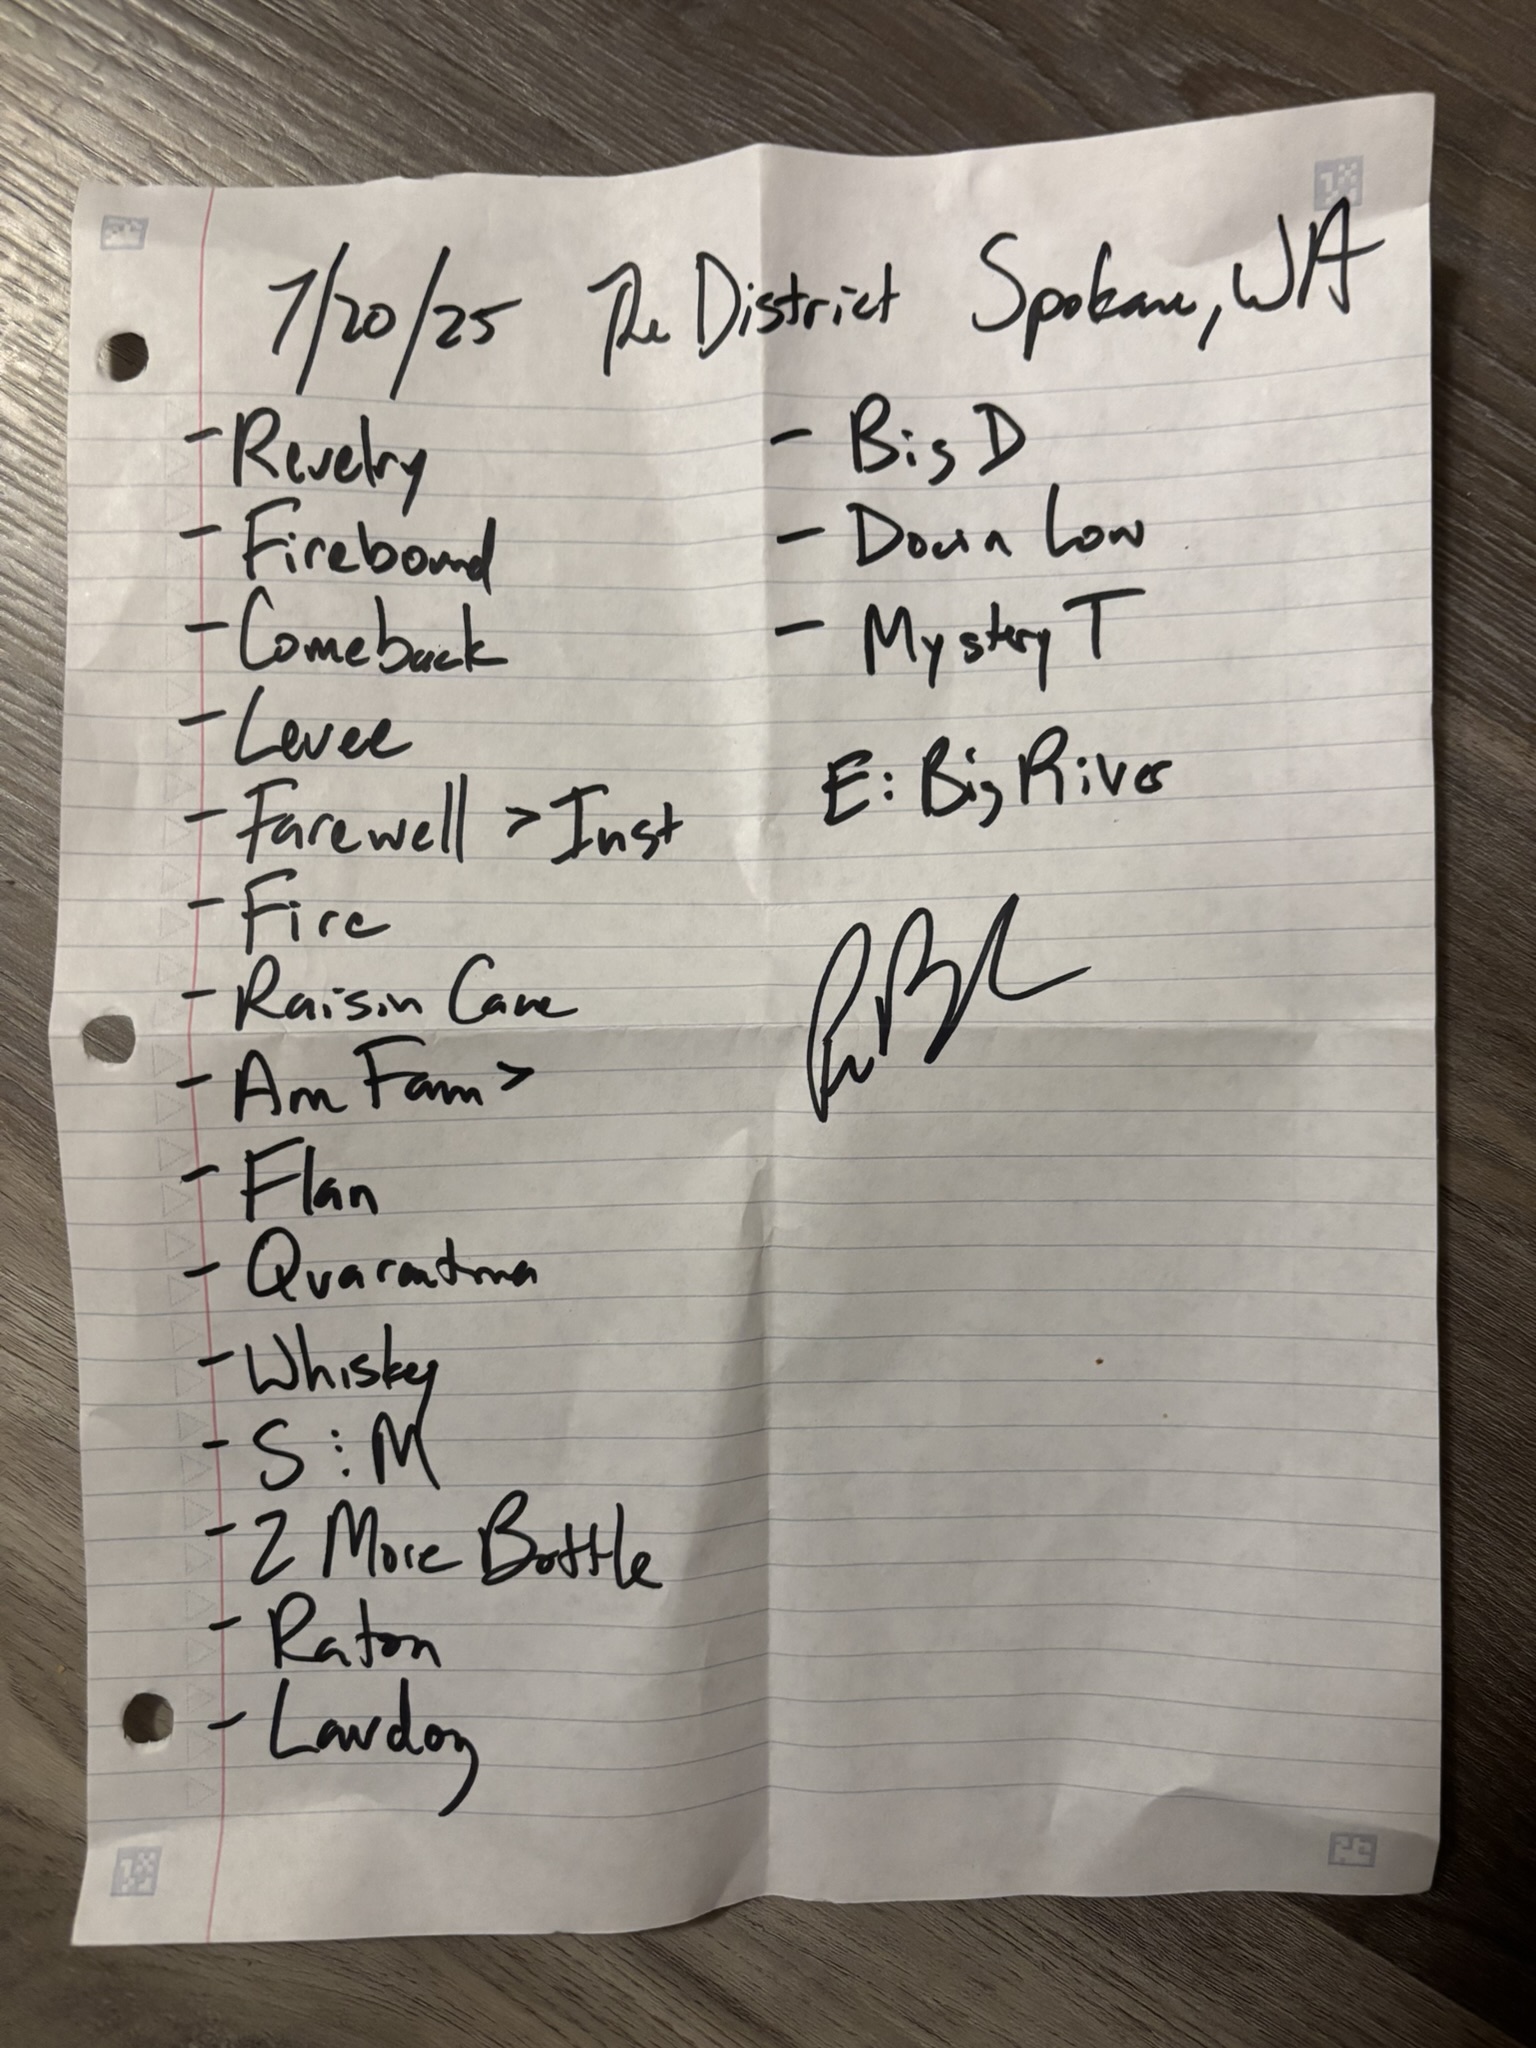 7/20/25 The District Spokane, WA
- Revelry
- Firebound
- Comeback
- Levee
- Farewell > Inst
- Fire
- Raisin Cane
- Am Fam >
- Flan
- Quarantina
- Whiskey
- S:M
- 2 More Bottle
- Raton
- Lawdog
- Big D
- Down Low
- Mystery T
E: Big River